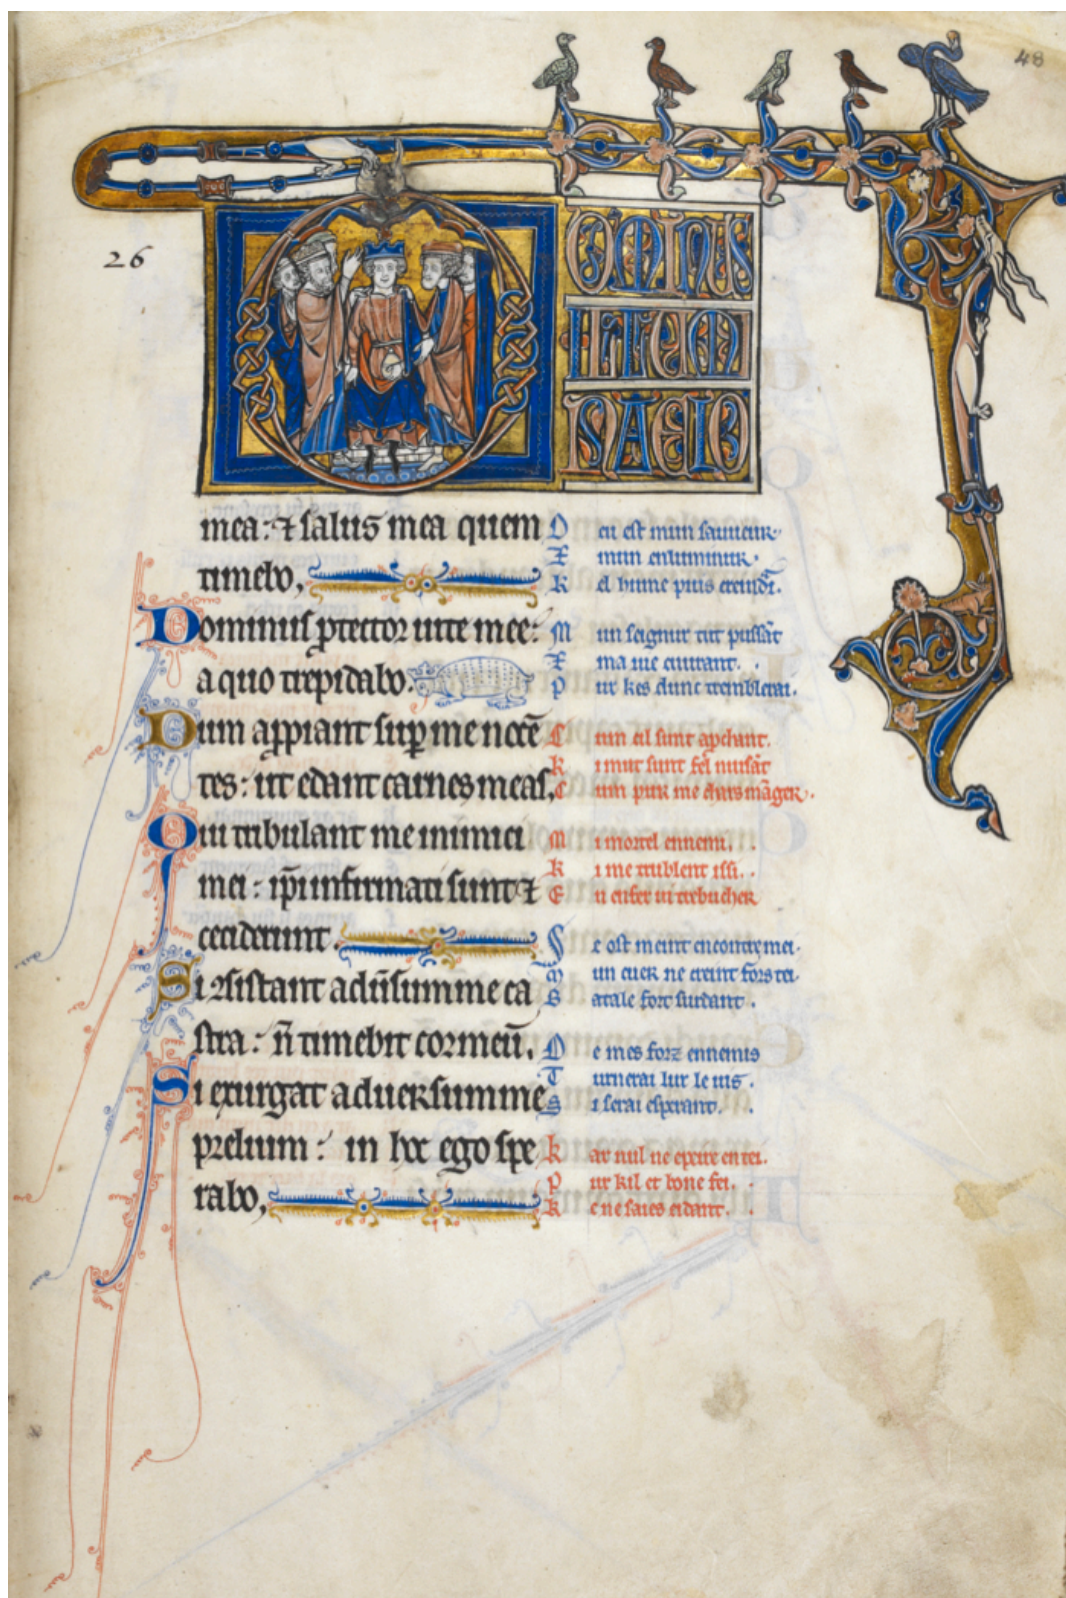 48
26
DOMINUS
ILLUM
INACIO
mea: ⁊ salus mea quem
timebo,
Dominus ꝓtector uite mee:
a quo trepidabo.
Dum aꝓpiant suꝑ me nocē
tes: ut edant carnes meas,
Qui tribulant me inimici
mei: ip̄i infirmati sunt ⁊
ceciderunt.
Si ꝯsistant adūsum me ca
stra: n̄ timebit cor meū.
Si exurgat aduersum me
prelium: in hoc ego spe
rabo,
Deu est mun sauueur
E mun enluminur.
K
Mun seignur tut pussāt
E ma uie
Pur kes dunc temblerai.
Cum cil sunt
Ki mut sunt fel nuisāt
Cum pur me chars māger.
Mi mortel ennemi.
Ki me trublent issi.
En enfer unt trebucher
Se ost meint encontre mei.
Mun cuer ne creint fors tei
S
De mes forz ennemis
Turnerai lur le uis.
Si serai esperant.
Kar nul ne en tei.
Pur kil et bone fei.
Ke ne saies eidant.